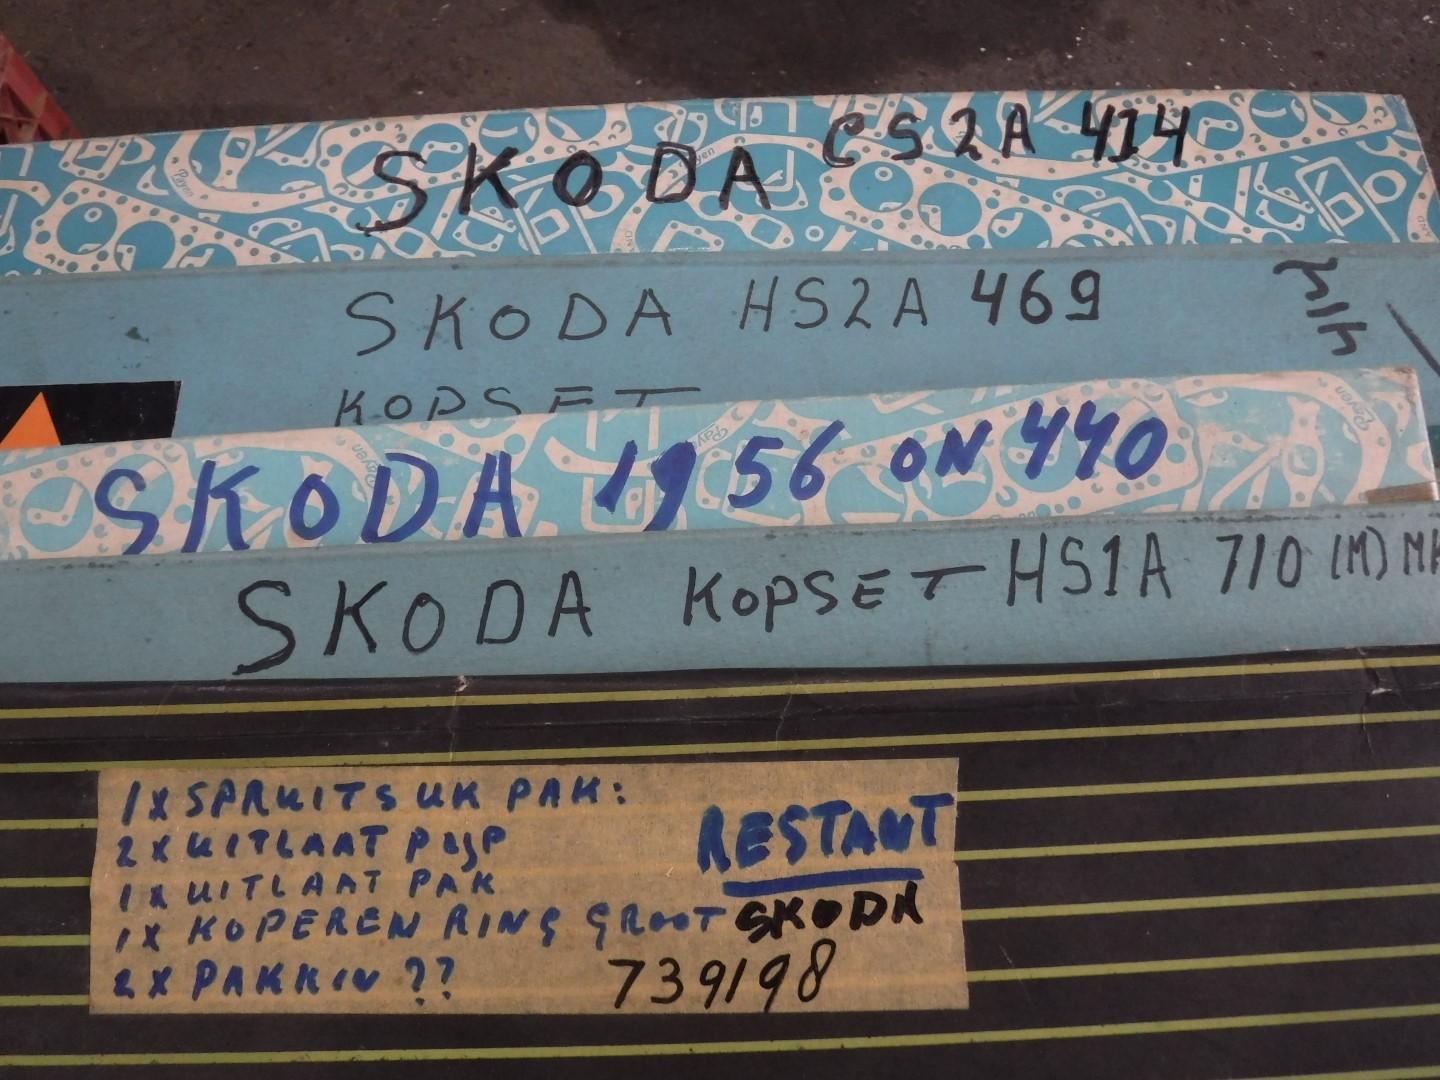 SKODA CS2A 414
SKODA HS2A 469
KOPSET
SKODA 1956 ON 440
SKODA KOPSET HS1A 710 (M) MK
1X SPRUITSUK PAK:
2X UITLAAT
1X UITLAAT PAK
1X KOPEREN RING GROOT
2X PAKKIN ??
RESTANT
SKODA
739198
Payen
Payen
Payen
Payen